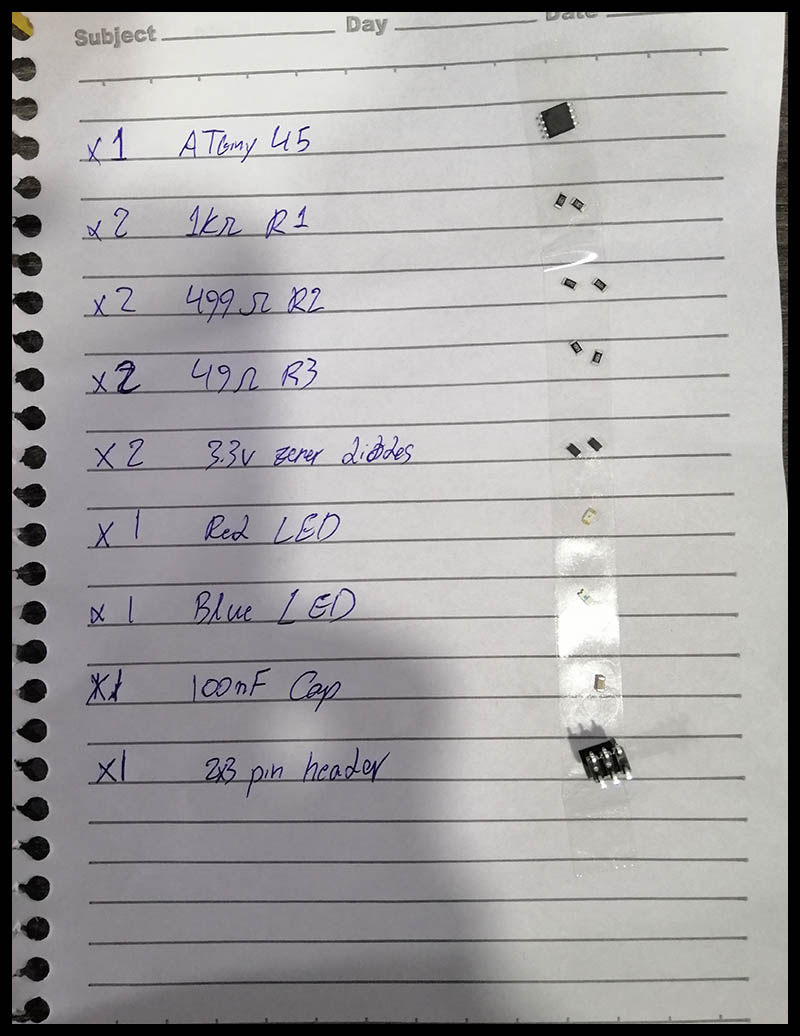 Subject Day Date
x1 ATtiny 45
x2 1KΩ R1
x2 499Ω R2
x2 49Ω R3
x2 3.3v zener diodes
x1 Red LED
x1 Blue LED
x1 100nF Cap
x1 2x3 pin header